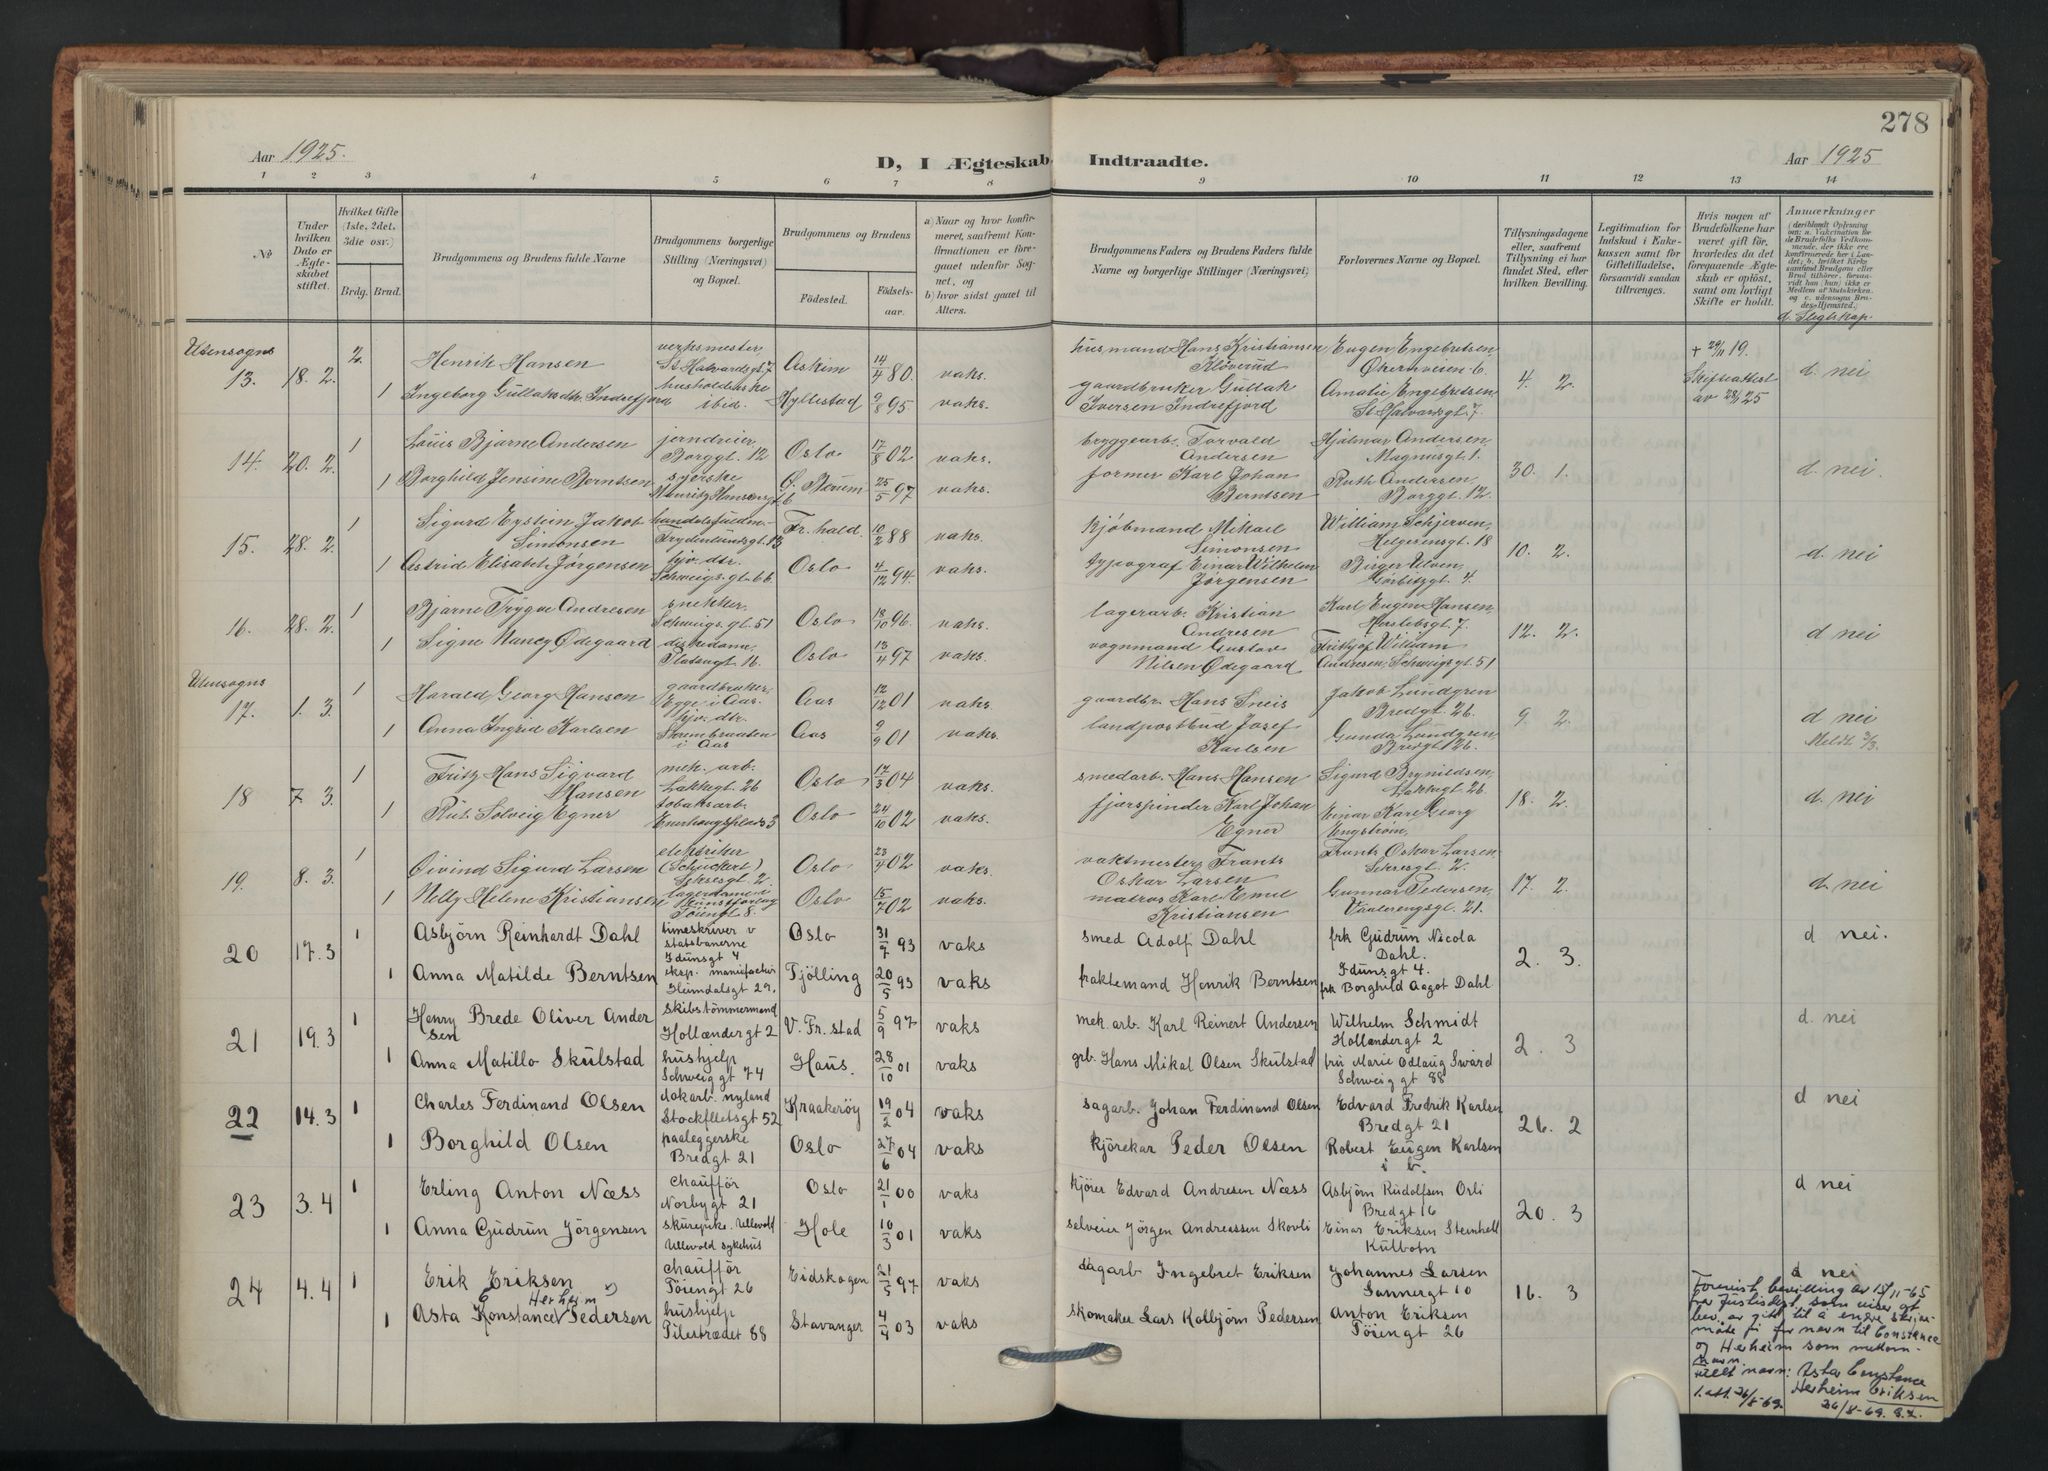 278
Aar 1925.
D, I Ægteskab Indtraadte.
Aar 1925
1 2 3 4 5 6 7 8 9 10 11 12 13 14
No
Under hvilken Dato er Ægteskabet stiftet.
Hvilket Gifte (1ste, 2det, 3die osv.)
Brdg. Brud.
Brudgommens og Brudens fulde Navne
Brudgommens borgerlige Stilling (Næringsvei) og Bopæl.
Brudgommens og Brudens
Fødested. Fødselsaar.
a) Naar og hvor konfirmeret, saafremt Konfirmationen er foregaaet udenfor Sognet, og
b) hvor sidst gaaet til Alters.
Brudgommens Faders og Brudens Faders fulde Navne og borgerlige Stillinger (Næringsvei;
Forlovernes Navne og Bopæl.
Tillysningsdagene eller, saafremt Tillysning ei har fundet Sted, efter hvilken Bevilling.
Legitimation for Indskud i Enkekassen samt for Giftetilladelse, forsaavidt saadan tiltrænges.
Hvis nogen af Brudefolkene har været gift før, hvorledes da det foregaaende Ægteskab er opløst, samt om lovligt Skifte er holdt.
Anmærkninger
d. Slegtskap.
Utensogns
13. 18. 2. 2. Henrik Hansen verksmester, St. Halvardsgt. 7 Askim 14/4 80. vaks. husmand Hans Kristiansen Kløverud Eugen Engebretsen, Økernveien 6. 4. 2. + 29/11 19. Skifteattest av 28/1 25 d. nei
1 Ingeborg Gullaksdtr. Indrefjord husholderske ibid. Hyllestad 9/8 95. vaks. gaardbruker Gullak Iversen Indrefjord Amalie Engebretsen, St. Halvardsgt. 7.
14. 20. 2. 1 Louis Bjarne Andersen jerndreier, Borggt. 12 Oslo 17/8 02 vaks. bryggearb. Torvald Andersen Hjalmar Andersen, Magnusgt. 1. 30. 1. d. nei.
1 Borghild Jensine Berntsen syerske Mauritz Hansensgt. 6 Ø. Bærum 25/5 97 vaks. former Karl Johan Berntsen Ruth Andersen, Borggt. 12.
15. 28. 2. 1 Sigurd Eystein Jakob Simonsen handelsfuldm. Frydenlundsgt. 13 Fr. hald. 10/2 88 vaks. kjøbmand Mikael Simonsen William Schjerven, Helgesensgt. 18 10. 2. d. nei
1 Astrid Elisabet Jørgensen hjv. dtr. Schweigs. gt. 66 Oslo 4/12 94. vaks. typograf Einar Wilhelm Jørgensen Birger Ulven, Gørbitzgt. 4
16. 28. 2. 1 Bjarne Trygve Andresen snekker, Schweigs. gt. 51 Oslo 18/10 96. vaks. lagerarb. Kristian Andresen Karl Eugen Hansen, Herslebsgt. 7. 12. 2. d. nei
1 Signe Nancy Ødegaard Platougt. 16. Oslo 13/4 97 vaks. vognmand Gustav Nilsen Ødegaard Frithjof William Andresen, Schweigsgt. 51
Utensogns
17. 1. 3. 1 Harald Georg Hansen gaardbruker, Egge i Aas. Aas 12/12 01 vaks. gaardbr. Hans Sneis Jakob Lundgren Bredgt. 26. 9. 2. d nei
1 Anna Ingrid Karlsen hjv. dtr. i Aas Aas 9/9 01 vaks. landpostbud Josef Karlsen Gunda Lundgren, Bredgt. 26. Meldt 3/3.
18 7 3. 1 Fritz Hans Sigvard Hansen mek. arb. Lakkegt. 26 Oslo 17/3 04 vaks. smedarb. Hans Hansen Sigurd Brynildsen, Lakkegt. 26. 18. 2. d. nei
1 Rut Solveig Egner tobaksarb. Enerhaugsplads 3 Oslo 24/10 02 vaks. fjærspinder Karl Johan Egner Einar Karl Georg Engstrøm,
19. 8. 3. 1 Øivind Sigurd Larsen elektriker (Schuckert) Schesgt. 2. Oslo 23/4 02 vaks. vaktmester Frants Oskar Larsen Frants Oskar Larsen, Schesgt. 2. 17. 2. d. nei
1 Nelly Helene Kristiansen lagerdame i Kunstforlag Tøiengt. 8. Oslo 15/7 02 vaks. matros Karl Emil Kristiansen Gunnar Pedersen, Vaalerengsgt. 21.
20 17. 3 1 Asbjörn Reinhardt Dahl timeskriver v statsbanerne Idunsgt 4 Oslo 31/7 93 vaks smed Adolf Dahl frk Gudrun Nicola Dahl. Idunsgt 4. 2. 3. d nei.
1 Anna Matilde Berntsen eksp. manufactur Heimdalsgt 29. Tjölling 20/5 93 vaks fraktemand Henrik Berntsen frk Borghild Aagot Dahl
21 19. 3 1 Henry Brede Oliver Andersen skibstömmermand Hollændergt 2 V. Fr. stad 5/9 97 vaks mek. arb. Karl Reinert Andersen Wilhelm Schmidt Hollændergt 2 2. 3 d. nei
1 Anna Matillo Skulstad hushjelp Schweiggt 74 Haus. 28/10 01 vaks grb. Hans Mikal Olsen Skulstad fru Marie Odlaug Swärd Schweiggt 88
22 14. 3 1 Charles Ferdinand Olsen dokarb. nyland Stockfletsgt 52 Kraakeröy 19/2 04 vaks sagarb. Johan Ferdinand Olsen Edvard Fredrik Karlsen Bredgt 21 26. 2 d nei
1 Borghild Olsen paaleggerske Bredgt 21 Oslo 27/6 04 vaks kjörekar Peder Olsen Robert Eugen Karlsen i b.
23 3. 4 1 Erling Anton Næss chaufför Norbygt 21 Oslo 21/1 00 vaks kjörer Edvard Andresen Næss Asbjörn Rudolfsen Orli Bredgt 16 20. 3 d nei
1 Anna Gudrun Jörgensen skurepike. Ullevold Ullevold sykehus Hole 10/3 01 vaks selveier Jörgen Andreassen Skovli Einar Eriksen Steinhell Kulbotn
24 4. 4 1 Erik Eriksen chaufför Töiengt 26 Eidskogen 21/5 97 vaks dagarb Ingebret Eriksen Johannes Larsen Sannergt 10 16. 3 d nei
1 Asta Konstance Pedersen C Herheim hushjelp Pilestrædet 88 Stavanger 4/4 03 vaks skomaker Lars Kolbjörn Pedersen Anton Eriksen Töiengt 26
bevilling av 15/11-65
fra som viser at
bev. er gitt til å endre skrive-
måte for navn til Constance
og Herheim som mellom-
navn.
Fullt navn: Asta Constance
Herheim Eriksen
1. att. 26/8-69. 26/8-69.